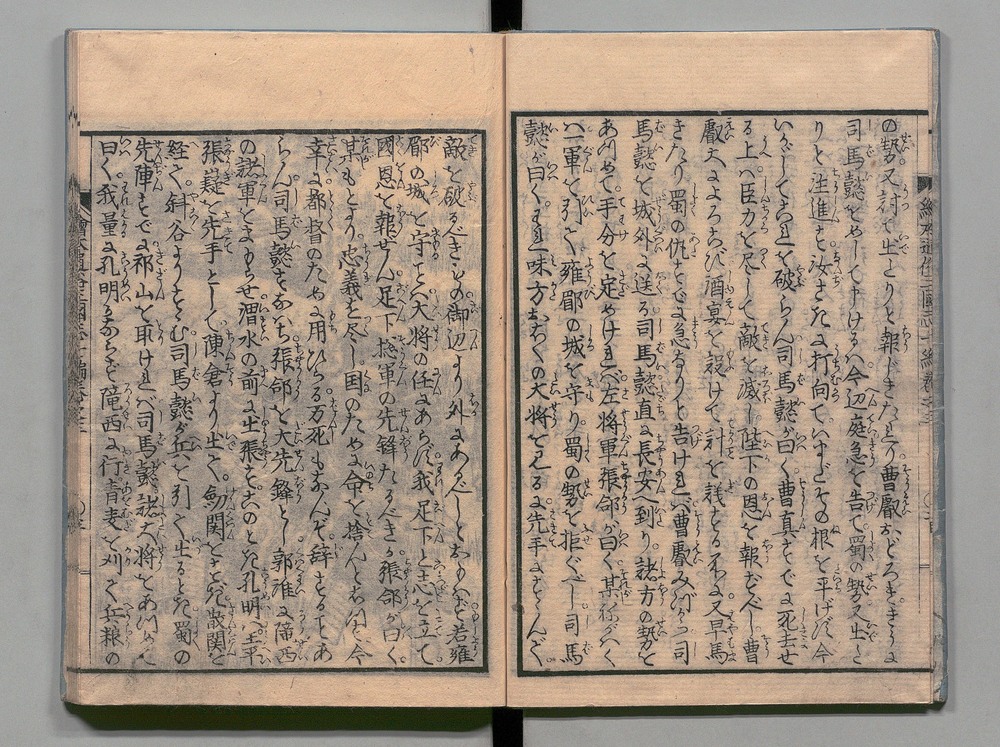 の勢又討て出たりと報じきたれり曹叡おどろききうに
司馬懿をめして申けるハ今辺庭急を告て蜀の勢又出た
りと注進す汝さきに打向ていまだその根を平げず今
いかゞしてこれを破らん司馬懿が曰く曹真すでに死去せ
る上ハ臣力を尽して敵を滅し陛下の恩を報ずべし曹
叡大によろこび酒宴を設けて計を議とるところに又早馬
きたり蜀の仇すでに急なりと告けれバ曹叡みづから司
馬懿を城外に送る司馬懿直に長安へ到り諸方の勢を
あつめて手分を定めけれバ左将軍張郃が曰く某
ハ一軍を引て雍郿の城を守り蜀の勢を拒ぐべし司馬
懿が曰くわれ味方おほくの大将を見るに先手にすゝんで
敵を破るべきもの御辺より外にあるべしともおもハず若雍
郿の城を守てハ大将の任にあらず我足下と志を立て
國恩を報せん足下惣軍の先鋒たるべきか張郃が曰く
某もとより忠義を尽し国のために命を捨んとおもふ今
幸に都督のために用ひらる万死もなんぞ辞することあ
らん司馬懿すなハち張郃を大先鋒とし郭淮に隴西
の諸軍をまもらせ渭水の前に出張すこのとき孔明ハ王平
張嶷を先手として陳倉より出て劔関をすぎ散関を
経て斜谷よりすゝむ司馬懿が兵を引て出るとき蜀の
先陣すでに祁山を取けれバ司馬懿諸大将をあつめて
曰く我量に孔明かならず隴西に行青麦を刈て兵粮の